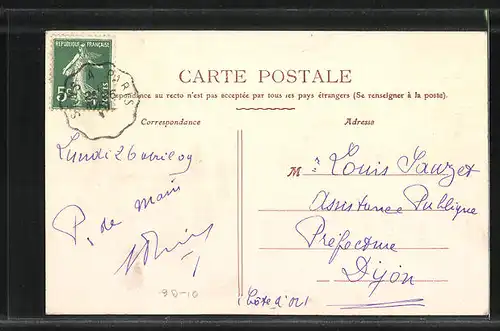 REPUBLIQUE FRANÇAISE
5c
A PARIS
CARTE POSTALE
Correspondance au recto n'est pas acceptée par tous les pays étrangers (Se renseigner à la poste).
Correspondance
Adresse
Lundi 26 avril 09
P. de main
90-10
Mr Louis Sauzet
Assistance Publique
Préfecture
Dijon
(Côte d'Or)